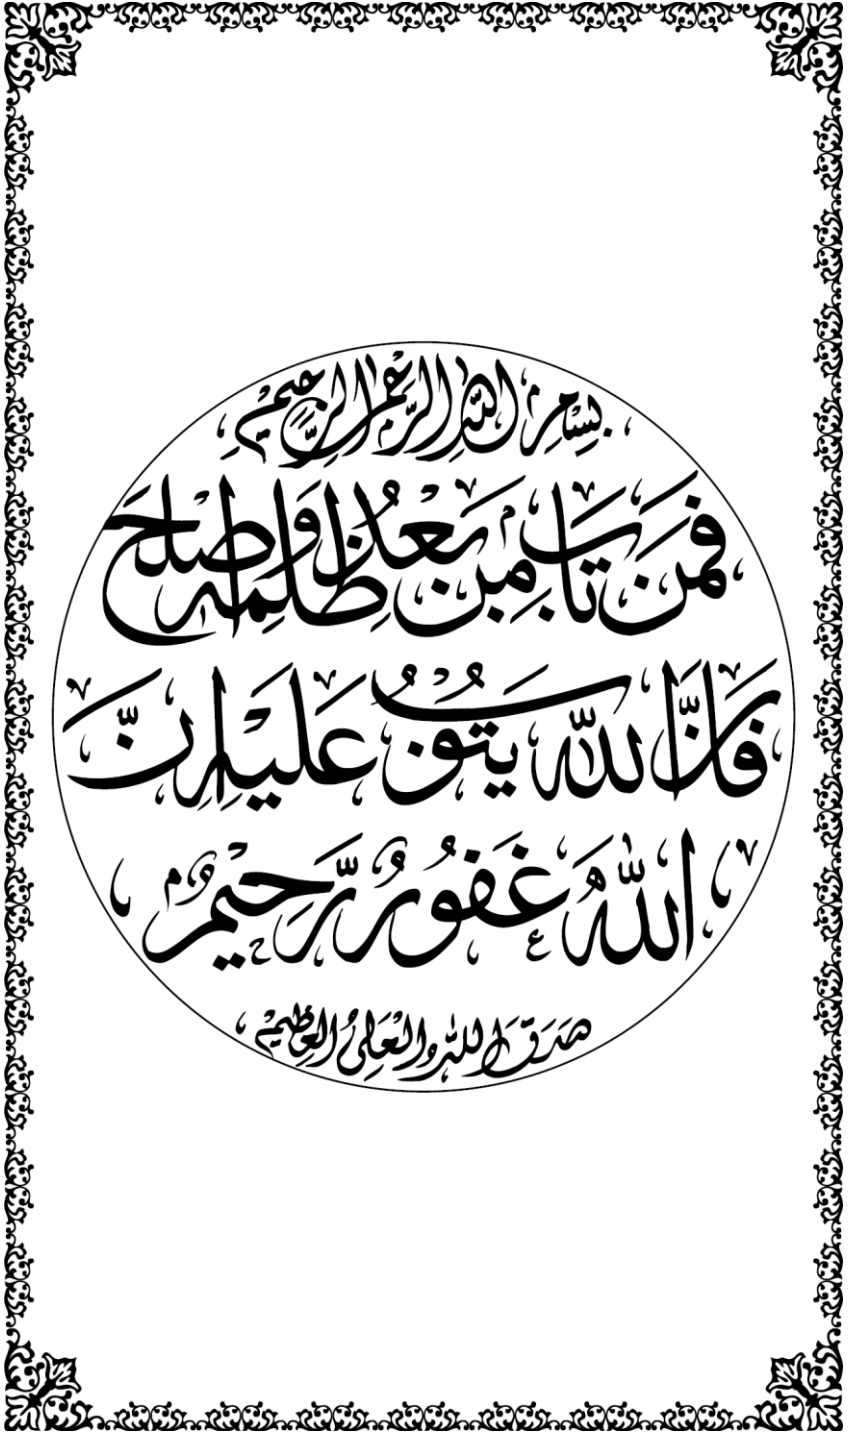 بسم الله الرحمن الرحيم
فَمَن تَابَ مِن بَعْدِ ظُلْمِهِ وَأَصْلَحَ
فَإِنَّ اللَّهَ يَتُوبُ عَلَيْهِ إِنَّ
اللَّهَ غَفُورٌ رَّحِيمٌ
صدق الله العلي العظيم